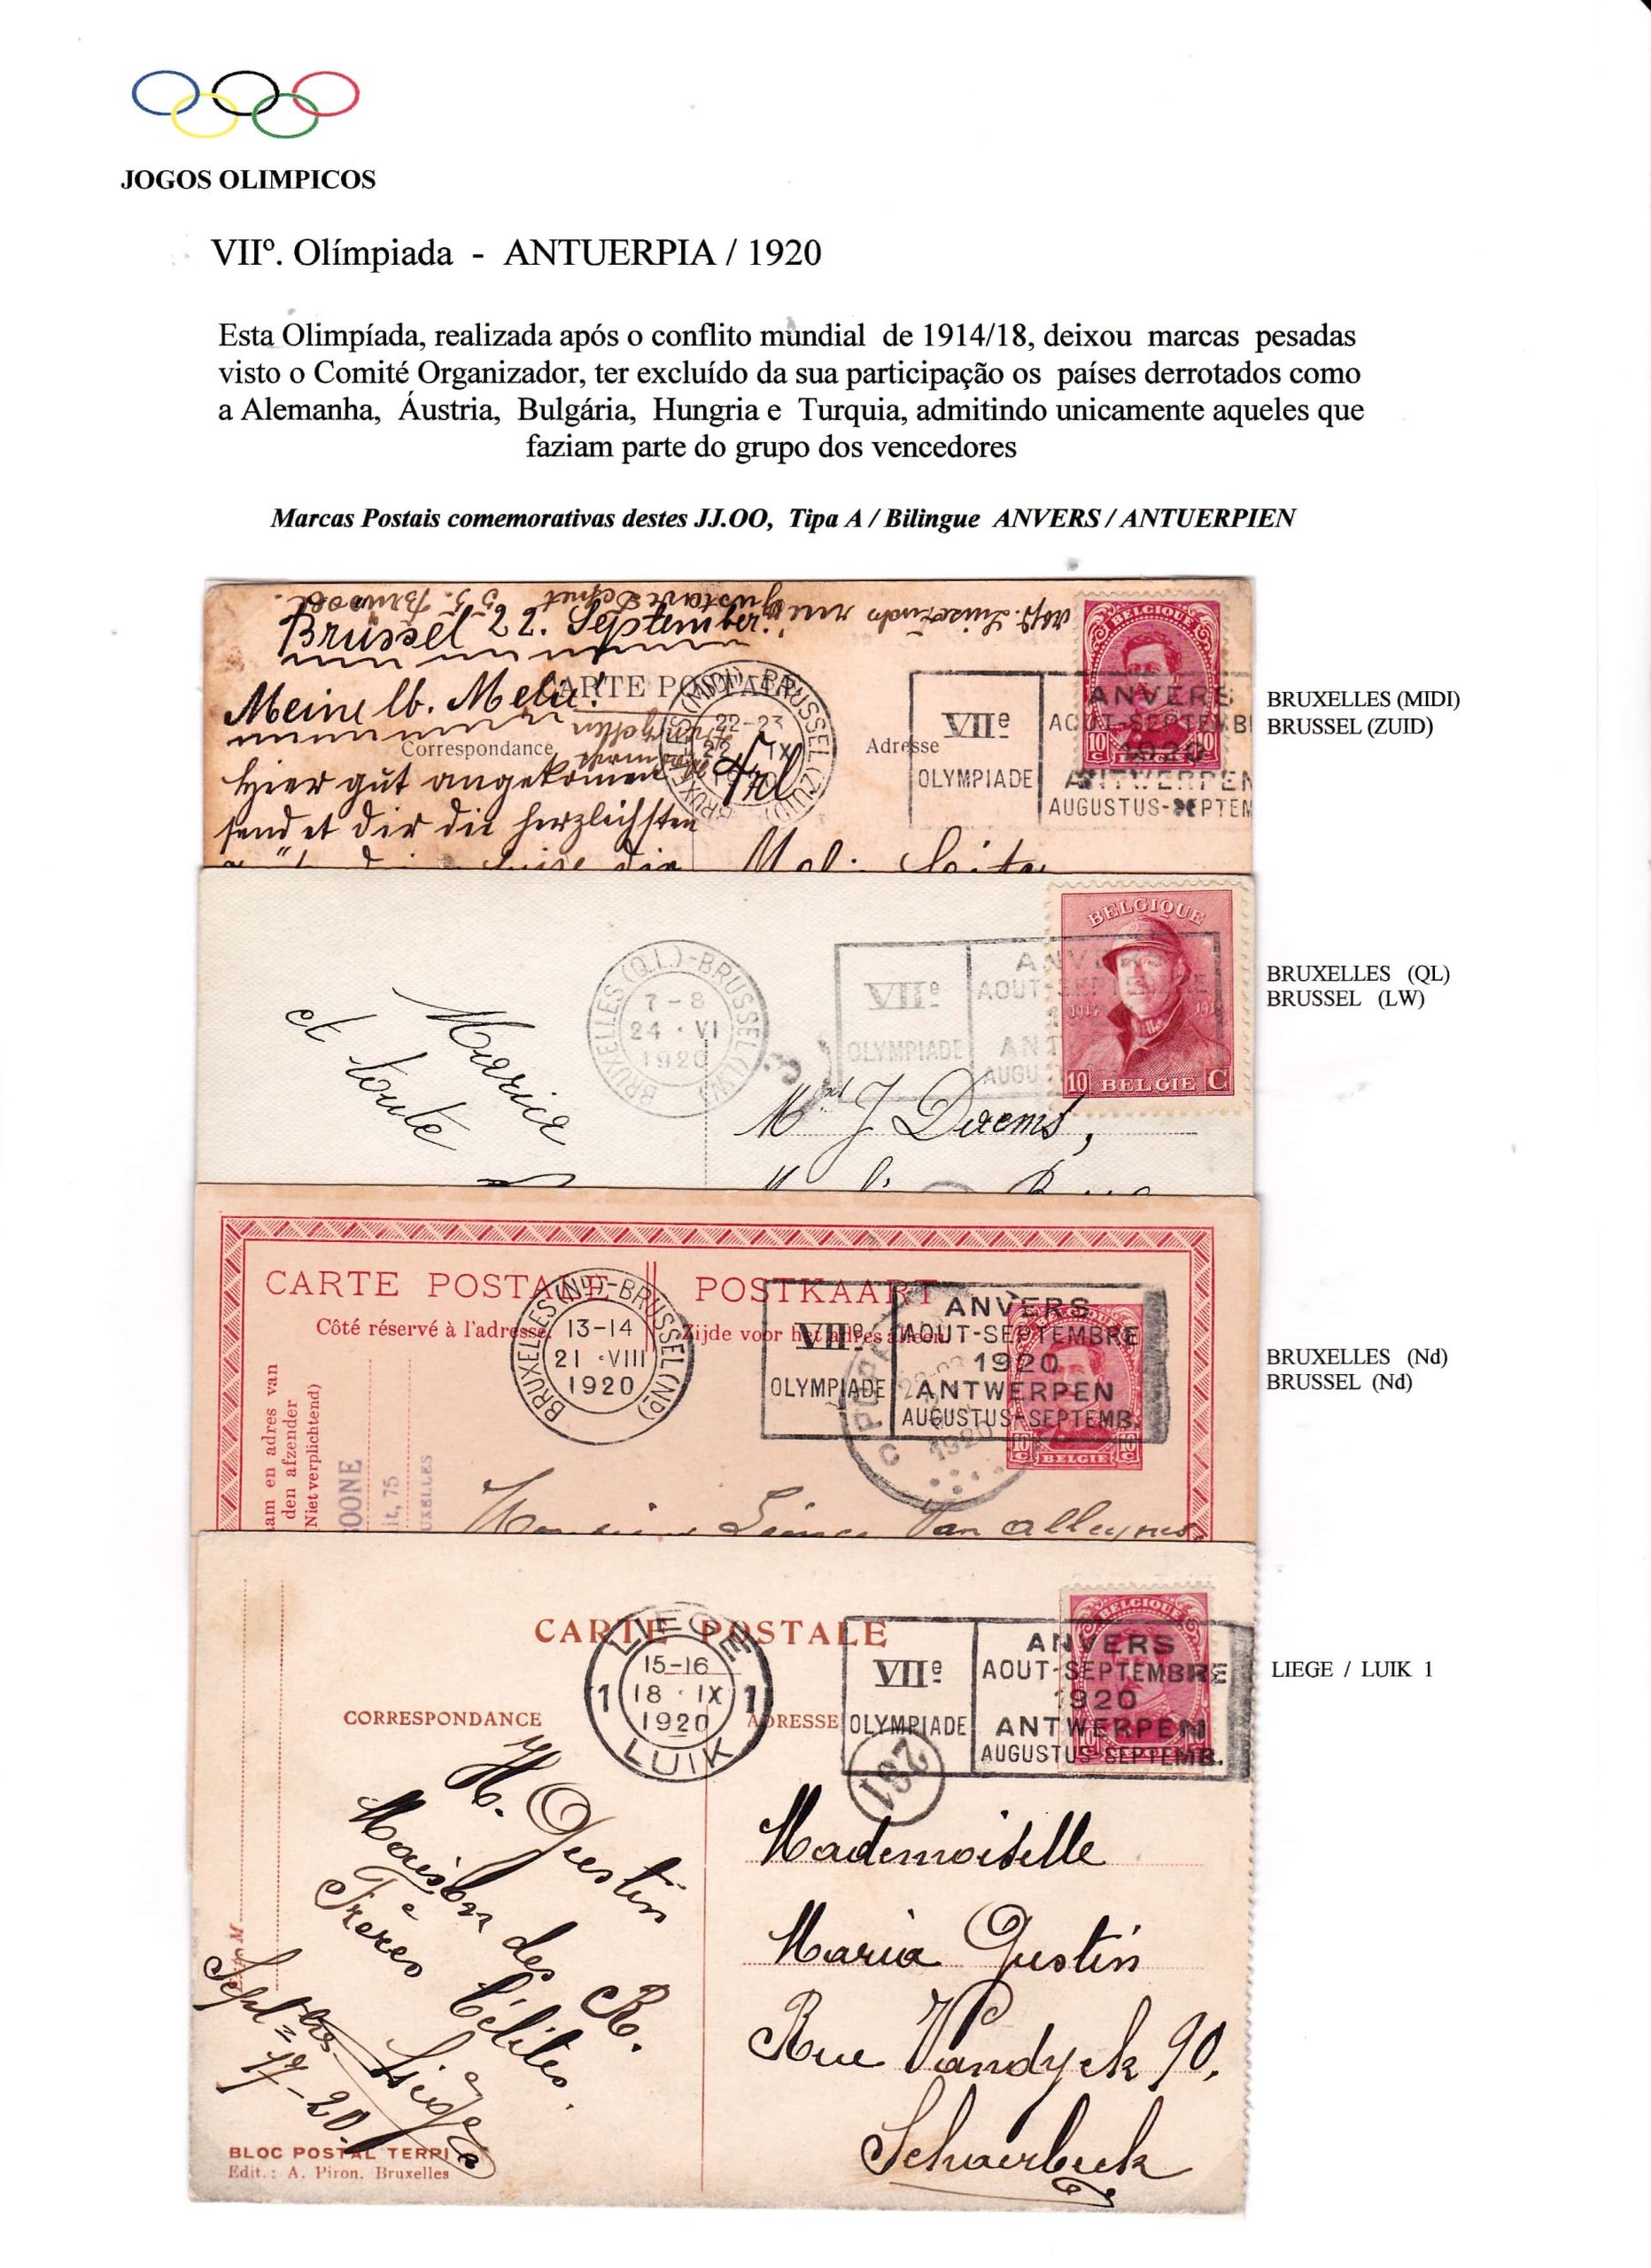 JOGOS OLIMPICOS
VIIº. Olímpiada - ANTUERPIA / 1920
Esta Olimpíada, realizada após o conflito mundial de 1914/18, deixou marcas pesadas
visto o Comité Organizador, ter excluído da sua participação os países derrotados como
a Alemanha, Áustria, Bulgária, Hungria e Turquia, admitindo unicamente aqueles que
faziam parte do grupo dos vencedores
Marcas Postais comemorativas destes JJ.OO, Tipa A / Bilingue ANVERS / ANTUERPIEN
Brüssel 22. September.
Meine lb. Meli!
CARTE POSTALE
Correspondance
Adresse
Hier gut angekommen
sendet dir die herzlichsten
BRUXELLES (MIDI) - BRUSSEL (ZUID)
22-23
22 IX
VIIe
OLYMPIADE
ANVERS
AOUT-SEPTEMB
1920
ANTWERPEN
AUGUSTUS-SEPTEM
BELGIQUE
10 10
BRUXELLES (MIDI)
BRUSSEL (ZUID)
BELGIQUE
10 BELGIE C
BRUXELLES (Q.L.)-BRUSSEL (L.W.)
7-8
24 · VI
1920
VIIe
OLYMPIADE
ANV
AOUT-SEPTEMBRE
ANT
AUGU
Maria
et toute
J Daems,
BRUXELLES (QL)
BRUSSEL (LW)
CARTE POSTALE
POSTKAART
Côté réservé à l'adresse.
Zijde voor het adres alleen
BRUXELLES (Nd)-BRUSSEL (Nd)
13-14
21 · VIII
1920
VIIe
OLYMPIADE
ANVERS
AOUT-SEPTEMBRE
1920
ANTWERPEN
AUGUSTUS-SEPTEMB.
BELGIE
am en adres van
den afzender
(Niet verplichtend)
OONE
it, 75
UXELLES
Van Alleynes
BRUXELLES (Nd)
BRUSSEL (Nd)
CARTE POSTALE
CORRESPONDANCE
ADRESSE
LIEGE
15-16
1 18 · IX 1
1920
LUIK
VIIe
OLYMPIADE
ANVERS
AOUT-SEPTEMBRE
1920
ANTWERPEN
AUGUSTUS-SEPTEMB.
BELGIQUE
281
LIEGE / LUIK 1
H. Gustin
Maison des R.
Frères Célites.
Liége
Septbre
17-20.
Mademoiselle
Maria Gustin
Rue Vandyck 90.
Schaerbeek
BLOC POSTAL TERPI
Edit.: A. Piron. Bruxelles